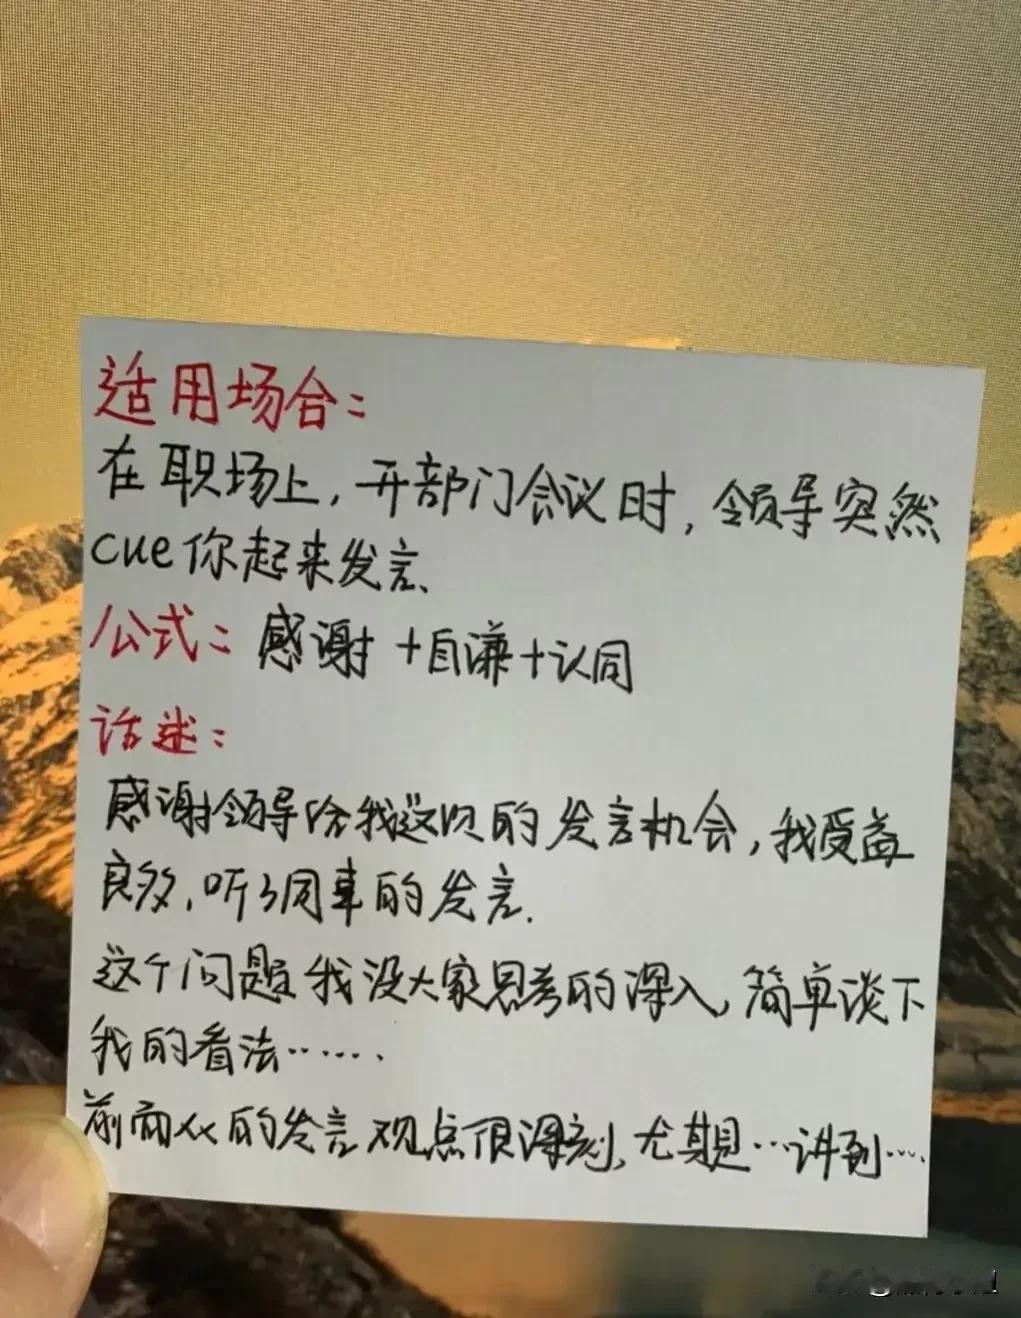 适用场合：
在职场上，开部门会议时，领导突然
cue你起来发言、
公式：感谢+自谦+认同
话述：
感谢领导给我这次的发言机会，我受益
良多，听了同事的发言.
这个问题我没大家思考的深入，简单谈下
我的看法……
前面从的发言观点很深刻，尤其是…讲到…